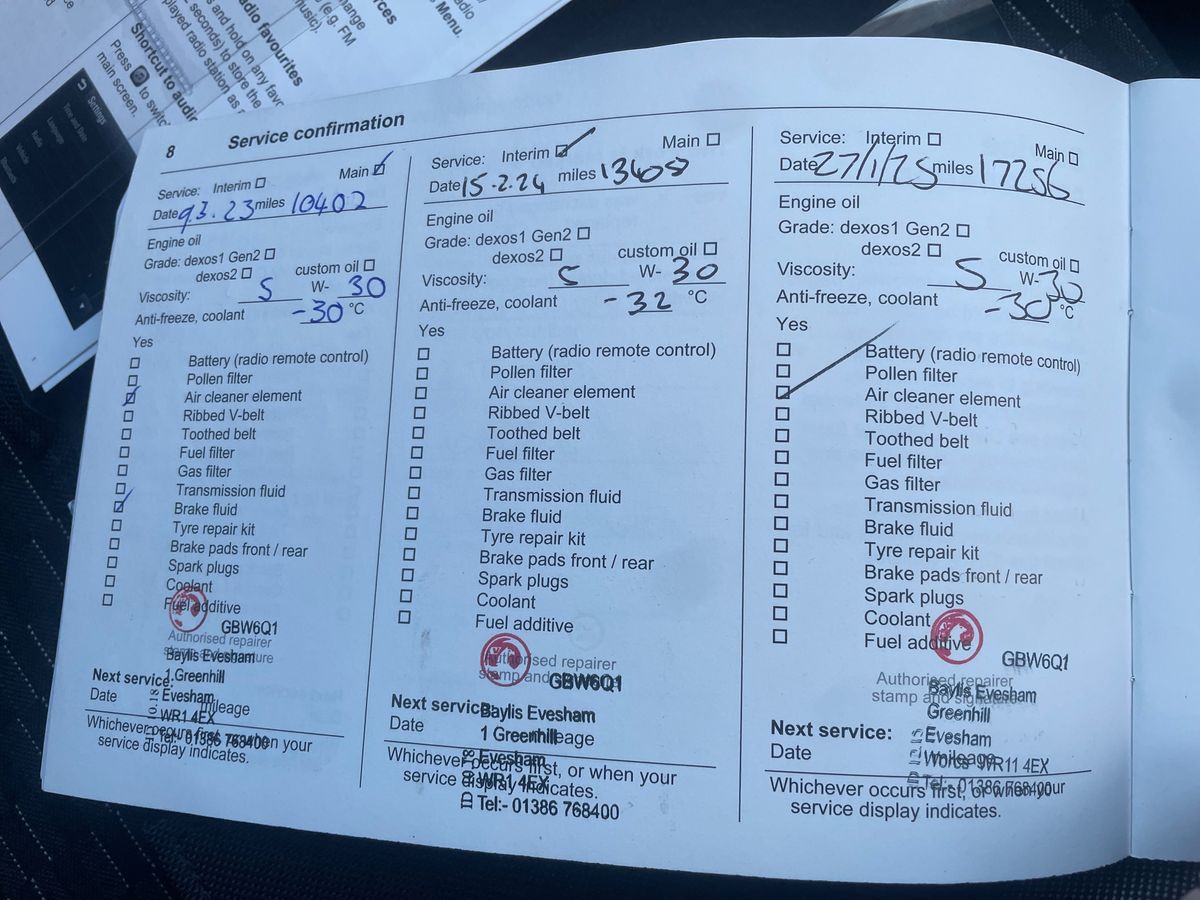 adio
Menu.
hange
(e.g. FM
music).
adio favourites
s and hold on any favo
seconds) to store the
played radio station as
Shortcut to audio
Press to switc
main screen.
Settings
Time and Date
Language
Radio
Vehicle
Bluetooth
8 Service confirmation
Service: Interim Main
Date 9.3.23 miles 10402
Engine oil
Grade: dexos1 Gen2
dexos2 custom oil
Viscosity: 5 W- 30
Anti-freeze, coolant -30 °C
Yes
Battery (radio remote control)
Pollen filter
Air cleaner element
Ribbed V-belt
Toothed belt
Fuel filter
Gas filter
Transmission fluid
Brake fluid
Tyre repair kit
Brake pads front / rear
Spark plugs
Coolant
Fuel additive
GBW6Q1
Authorised repairer
stamp and signature
Baylis Evesham
1 Greenhill
Next service:
Evesham
Date mileage
WR1 4EX
Whichever occurs first, or when your
Tel:- 01386 768400
service display indicates.
Service: Interim Main
Date 15.2.24 miles 13408
Engine oil
Grade: dexos1 Gen2
dexos2 custom oil
Viscosity: 5 W- 30
Anti-freeze, coolant -32 °C
Yes
Battery (radio remote control)
Pollen filter
Air cleaner element
Ribbed V-belt
Toothed belt
Fuel filter
Gas filter
Transmission fluid
Brake fluid
Tyre repair kit
Brake pads front / rear
Spark plugs
Coolant
Fuel additive
Authorised repairer
stamp and
GBW6Q1
Next service:
Baylis Evesham
Date mileage
1 Greenhill
Whichever occurs first, or when your
Evesham
service display indicates.
WR1 4EX
Tel:- 01386 768400
Service: Interim Main
Date 27/1/25 miles 17256
Engine oil
Grade: dexos1 Gen2
dexos2 custom oil
Viscosity: 5 W- 30
Anti-freeze, coolant -30 °C
Yes
Battery (radio remote control)
Pollen filter
Air cleaner element
Ribbed V-belt
Toothed belt
Fuel filter
Gas filter
Transmission fluid
Brake fluid
Tyre repair kit
Brake pads front / rear
Spark plugs
Coolant
Fuel additive
GBW6Q1
Authorised repairer
stamp and signature
Baylis Evesham
Greenhill
Next service:
Evesham
Date mileage
Worcs WR11 4EX
Whichever occurs first, or when your
Tel:- 01386 768400
service display indicates.